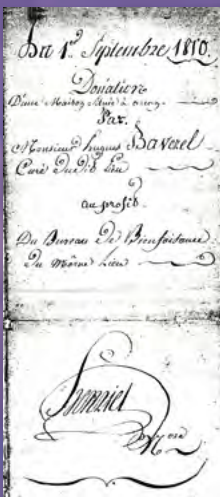 Du 1er Septembre 1810.
Donation
D'une Maison Située à
Par.
Monsieur hugues Baverel
Curé dudit Lieu
au profit
Du Bureau De Bienfaisance
Du même Lieu